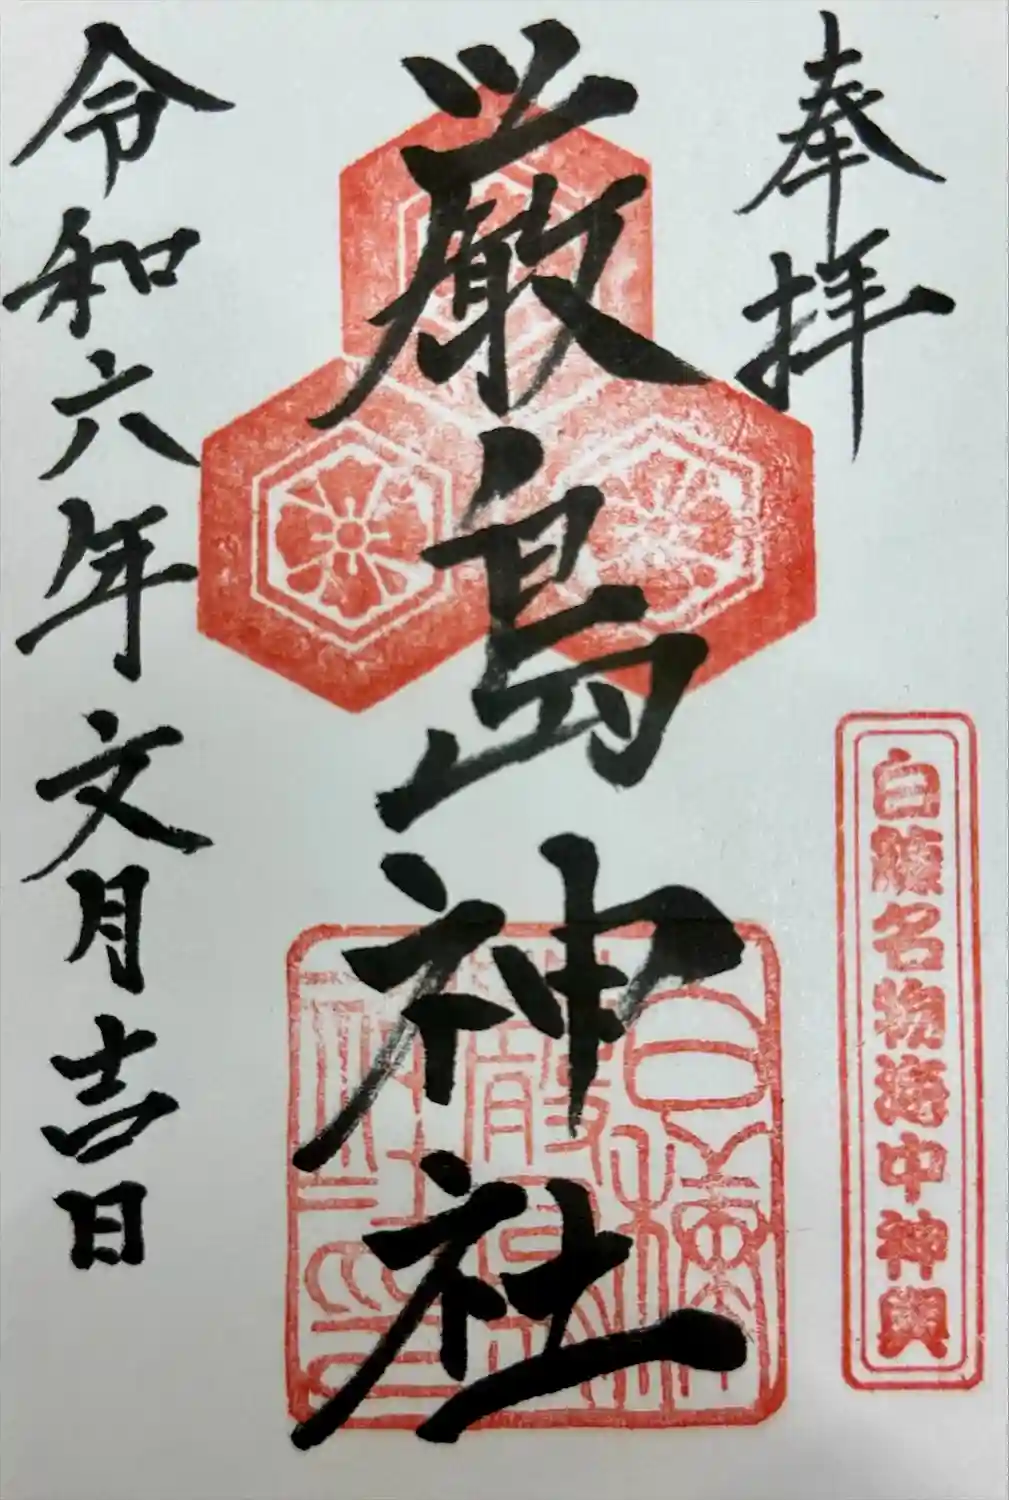 奉拝
白糠名物海中神輿
厳島神社
白糠厳島神社之印
令和六年文月吉日